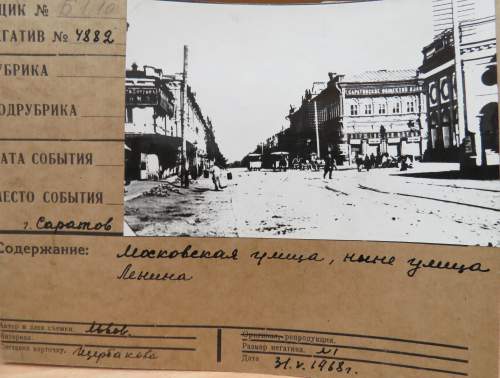 ЩИК №
ЕГАТИВ № 4882
УБРИКА
ОДРУБРИКА
АТА СОБЫТИЯ
МЕСТО СОБЫТИЯ
г. Саратов
Содержание: Московская улица, ныне улица
Ленина
Автор и дата съемки. Львов.
Материал.
Составил карточку. Щербакова
Оригинал, репродукция.
Размер негатива. №1
Дата 31.V.1968г.